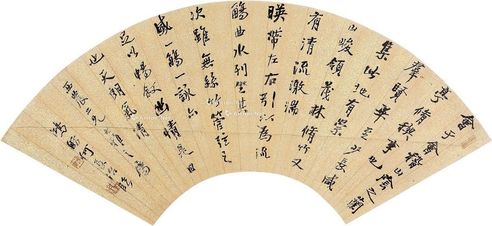 會于會稽山陰之蘭
亭脩禊事也
羣賢畢至少長咸
集此地有崇
山峻領茂林脩竹又
有清流激湍
暎帶左右引以為流
觴曲水列坐其
次雖無絲竹管弦之
盛一觴一詠亦
足以暢敘幽情是日
也天朗氣清
二兄大雅之屬